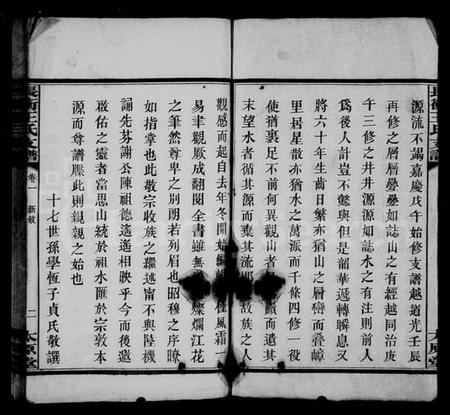 源流不竭嘉慶戊午始修支譜越道光壬辰
再修之層層壘壘如誌山之有經越同治庚
午三修之井井源源如誌水之有注則前人
爲後人計豈不懿與但是韶華遞轉瞬息又
將六十年生齒日繁亦猶山之層巒而疊嶂
里居星散亦猶水之萬派而千條四修一役
使猶裹足不前何異觀山者
巔而遺其
末望水者循其源而棄其流
故族之人
觀感而起自去年冬開
徂風霜一
易聿觀厥成翻閱全書雖無
燦爛江花
之筆然尊卑之別朗若列眉也昭穆之序瞭
如指掌也此敬宗收族之繼述甯不與陸機
誦先芬謝公陳祖德遙遙相映乎今而後邀
啟佑之靈者當思山統於祖水匯於宗敦本
源而尊譜牒此則親親之始也
十七世孫學恆子貞氏敬撰
長衡王氏支譜
卷一
新敘
二
太原堂